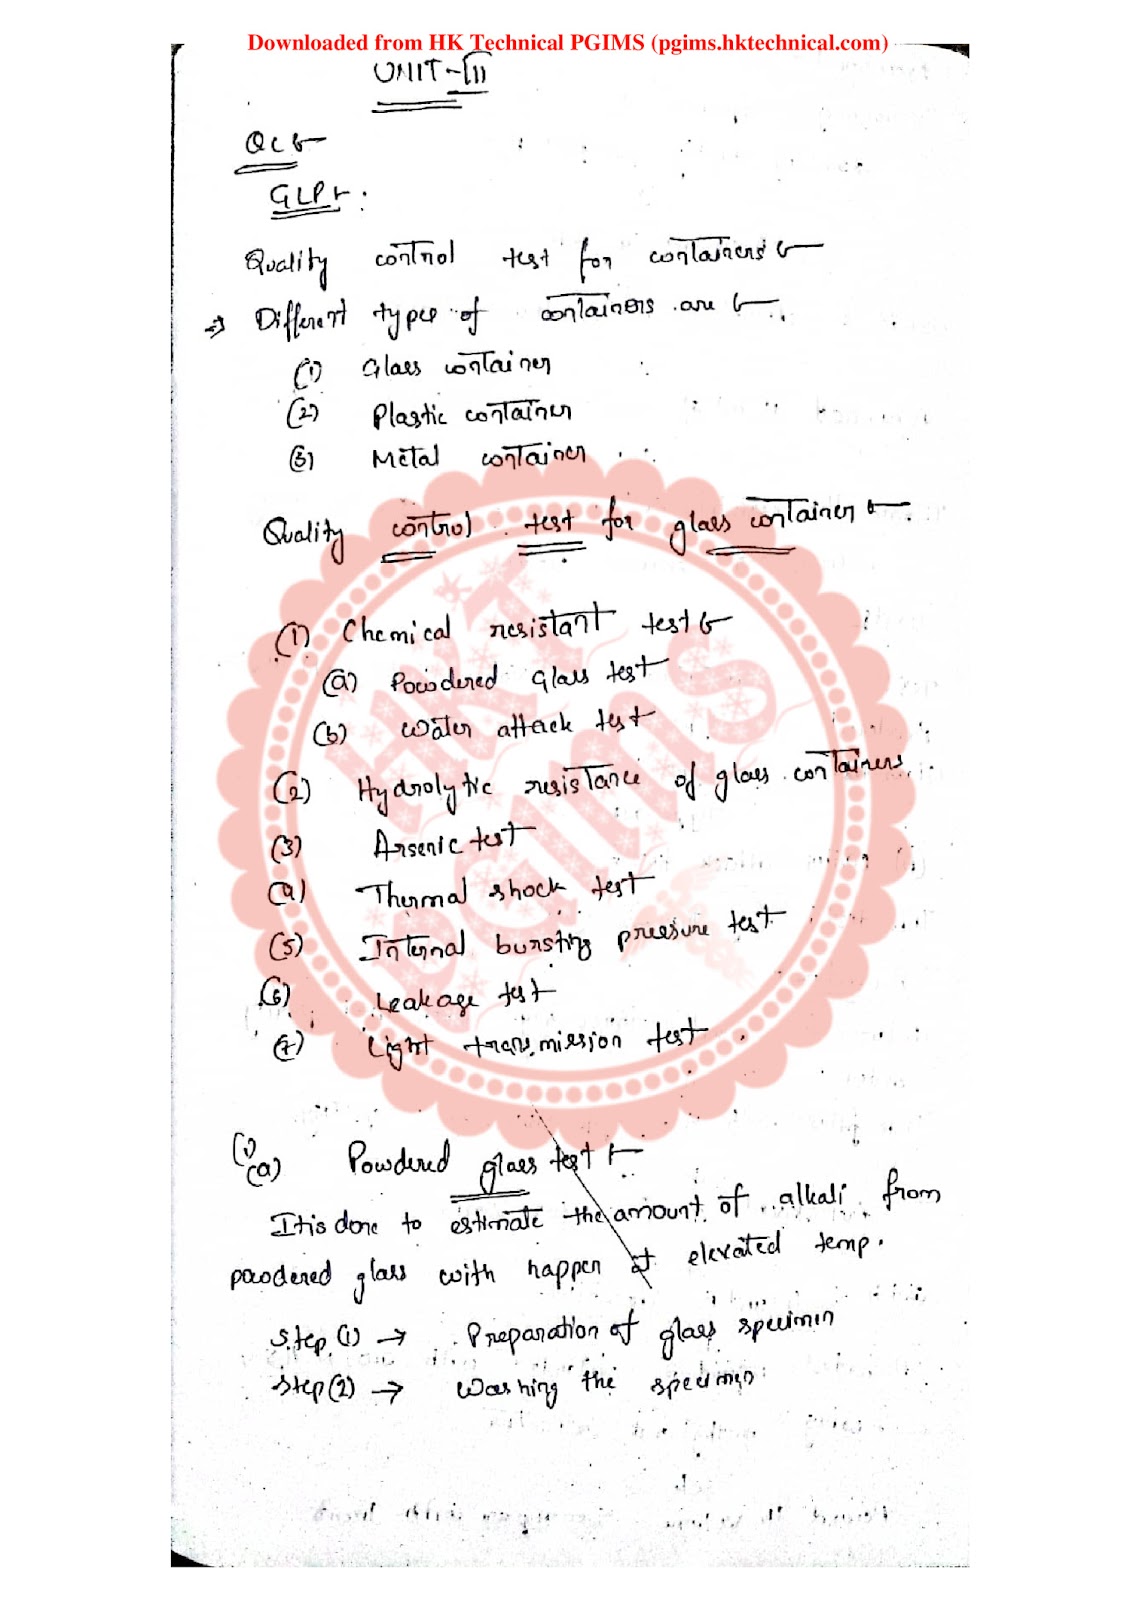 Downloaded from HK Technical PGIMS (pgims.hktechnical.com)
UNIT-III
QC :-
GLP :-
Quality control test for containers :-
⇒ Different types of containers are :-
(1) Glass container
(2) Plastic container
(3) Metal container
Quality control test for glass container :-
(1) Chemical resistant test :-
(a) Powdered Glass test
(b) Water attack test
(2) Hydrolytic resistance of glass containers
(3) Arsenic test
(4) Thermal shock test
(5) Internal bursting pressure test
(6) Leakage test
(7) Light transmission test
(1)(a) Powdered glass test :-
It is done to estimate the amount of alkali from
powdered glass with happen at elevated temp.
Step (1) → Preparation of glass specimin
Step (2) → Washing the specimen
HKT
PGIMS